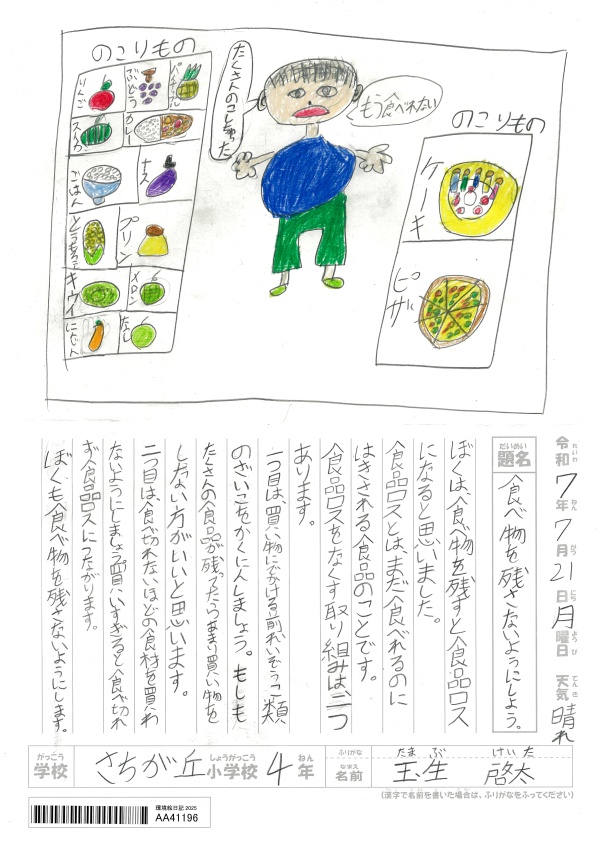 のこりもの
りんご
ぶどう
パイナップル
スイカ
カレー
ごはん
ナス
とうもろこし
プリン
キウイ
メロン
にんじん
なし
たくさんのこっちゃった
もう食べれない
のこりもの
ケーキ
ピザ
令和 7年 7月 21日 月曜日 天気 晴れ
れいわ ねん がつ にち ようび てんき
だいめい
題名
食べ物を残さないようにしよう。
ぼくは、食べ物を残すと食品ロス
になると思いました。
食品ロスとは、まだ食べれるのに
はきされる食品のことです。
食品ロスをなくす取り組みは二つ
あります。
一つ目は、買い物にでかける前れいぞうこ類
のざいこをかくにんしましょう。もしも
たくさんの食品が残ってたらあまり買い物を
しない方がいいと思います。
二つ目は、食べ切れないほどの食材を買わ
ないようにしましょう買いすぎると食べ切れ
ず食品ロスにつながります。
ぼくも食べ物を残さないようにします。
がっこう しょうがっこう ねん
学校 さちが丘 小学校 4年
ふりがな たまぶ けいた
なまえ
名前 玉生 啓太
(漢字で名前を書いた場合は、ふりがなをふってください)
環境絵日記 2025
AA41196